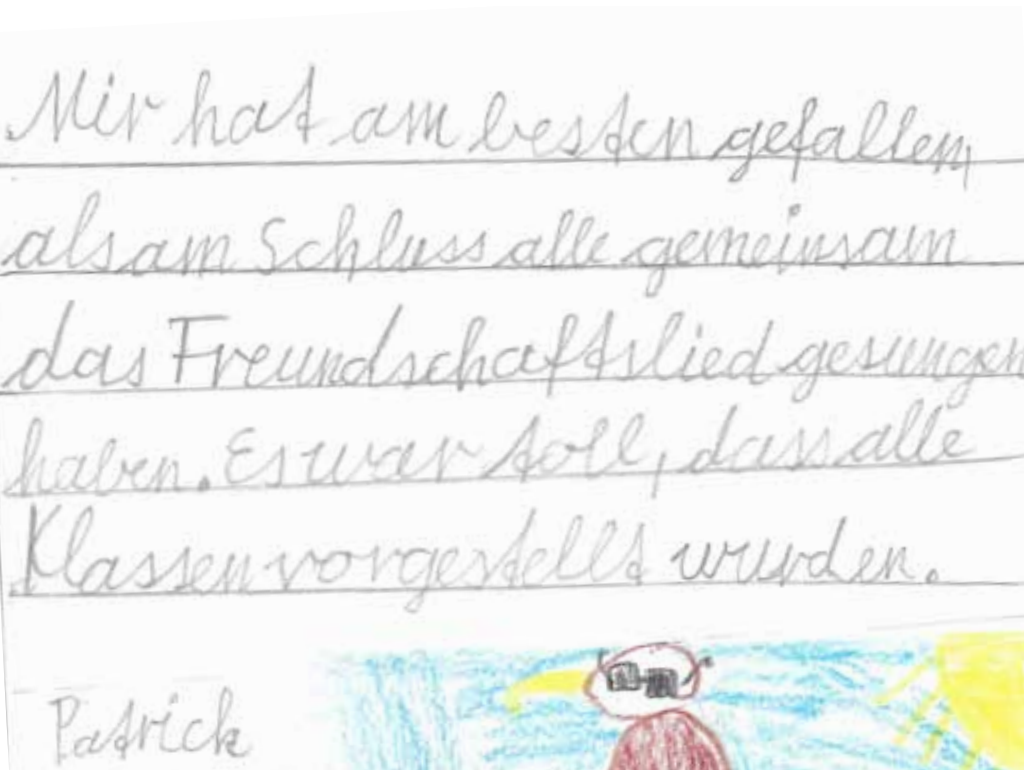 Mir hat am besten gefallen,
als am Schluss alle gemeinsam
das Freundschaftslied gesungen
haben. Es war toll, dass alle
Klassen vorgestellt wurden.
Patrick